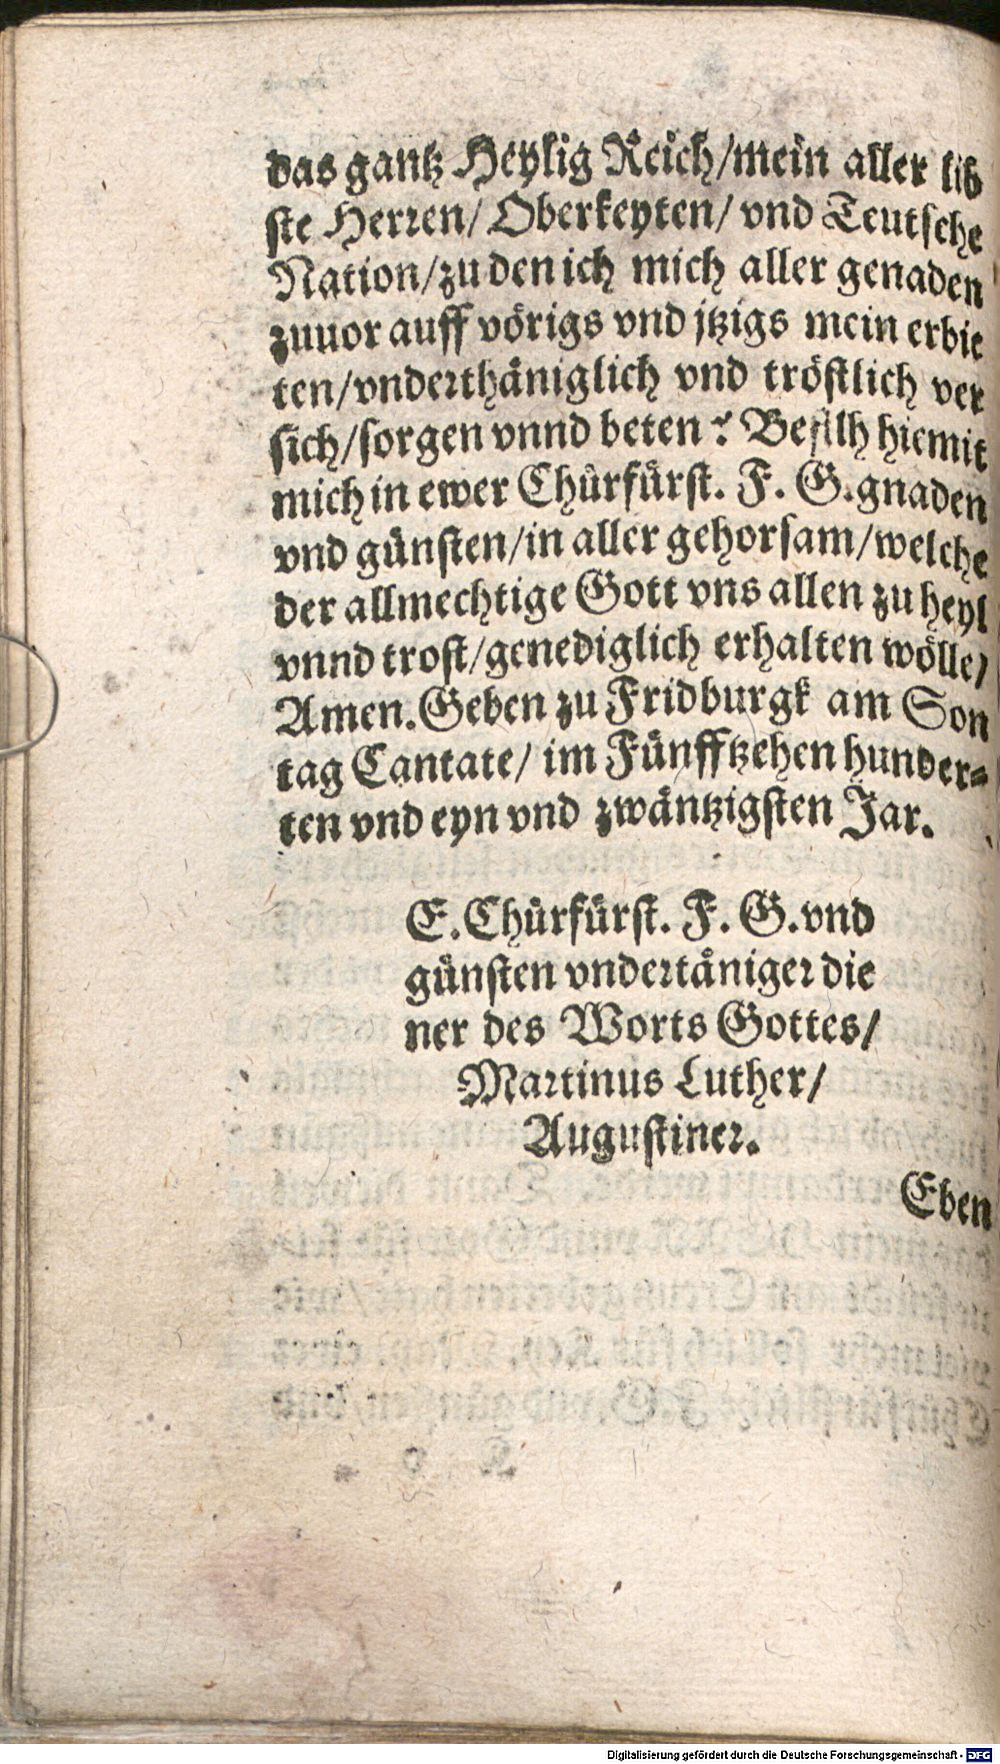 das gantz Heylig Reich/mein aller lib
ste Herren/ Oberkeyten/ vnd Teutsche
Nation/zu den ich mich aller genaden
zuuor auff vörigs vnd jtzigs mein erbie
ten/vnderthäniglich vnd tröstlich ver
sich/sorgen vnnd beten? Befilh hiemit
mich in ewer Chürfürst. F. G. gnaden
vnd günsten/in aller gehorsam/welche
der allmechtige Gott vns allen zu heyl
vnnd trost/genediglich erhalten wölle/
Amen. Geben zu Fridburgk am Son
tag Cantate/ im Fünfftzehen hunder=
ten vnd eyn vnd zwäntzigsten Jar.
E. Chürfürst. F. G. vnd
günsten vndertäniger die
ner des Worts Gottes/
Martinus Luther/
Augustiner.
Eben
Digitalisierung gefördert durch die Deutsche Forschungsgemeinschaft - DFG